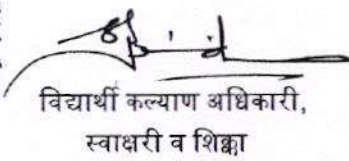 विद्यार्थी कल्याण अधिकारी,
स्वाक्षरी व शिक्का